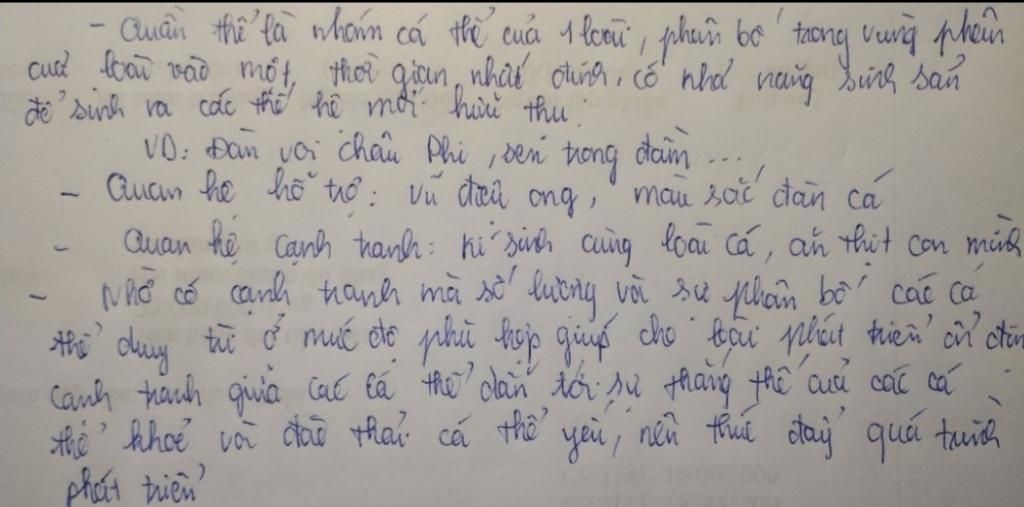 - Quần thể là nhóm cá thể của 1 loài, phân bố trong vùng phân
của loài vào một thời gian nhất định, có khả năng sinh sản
để sinh ra các thế hệ mới hữu thụ
VD: Đàn voi châu Phi, sen trong đầm ...
- Quan hệ hỗ trợ: vũ điệu ong, màu sắc đàn cá
- Quan hệ cạnh tranh: kí sinh cùng loài cá, ăn thịt con mình
- Nhờ có cạnh tranh mà số lượng và sự phân bố các cá
thể duy trì ở mức độ phù hợp giúp cho loài phát triển ổn địn
cạnh tranh giữa các cá thể dẫn tới sự thắng thế của các cá
thể khoẻ và đào thải cá thể yếu, nên thúc đẩy quá trình
phát triển